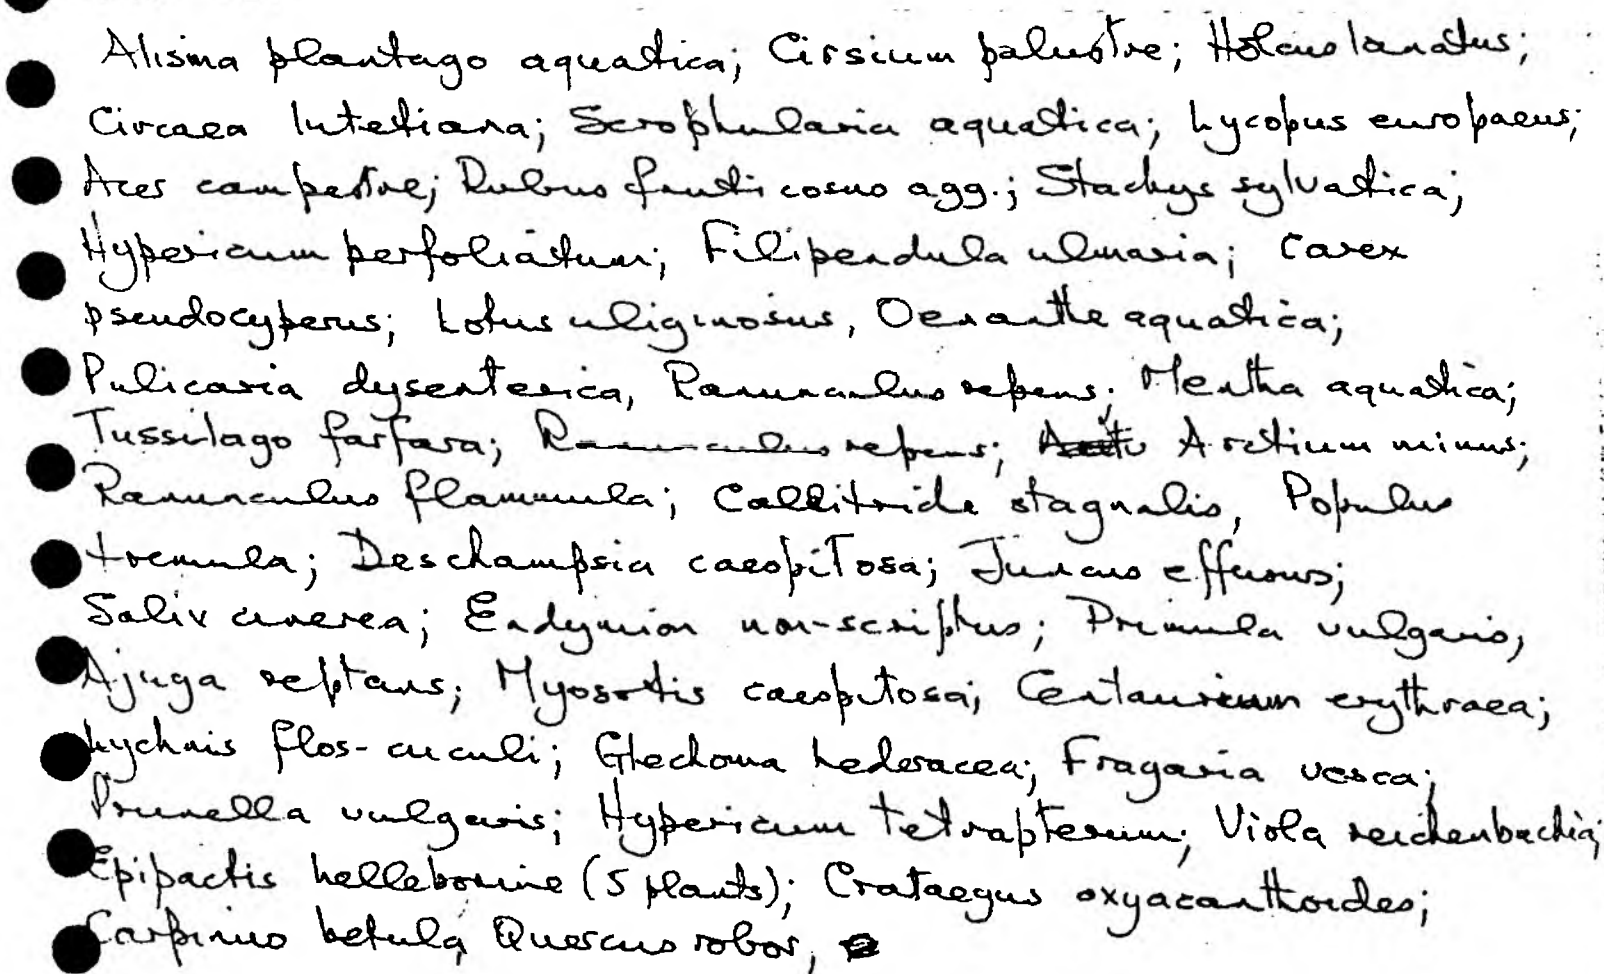 Alisma plantago aquatica; Cirsium palustre; Holcus lanatus;
Circaea lutetiana; Scrophularia aquatica; Lycopus europaeus;
Acer campestre; Rubus fruticosus agg.; Stachys sylvatica;
Hypericum perfoliatum; Filipendula ulmaria; Carex
pseudocyperus; Lotus uliginosus, Oenanthe aquatica;
Pulicaria dysenterica, Ranunculus repens; Mentha aquatica;
Tussilago farfara; Ranunculus repens; Arctium minus;
Ranunculus flammula; Callitriche stagnalis, Populus
tremula; Deschampsia caespitosa; Juncus effusus;
Salix cinerea; Endymion non-scriptus; Primula vulgaris,
Ajuga reptans; Myosotis caespitosa; Centaurium erythraea;
Lychnis flos-cuculi; Glechoma hederacea; Fragaria vesca;
Prunella vulgaris; Hypericum tetrapterum; Viola reichenbachia;
Epipactis helleborine (5 plants); Crataegus oxyacanthoides;
Carpinus betula, Quercus robor,